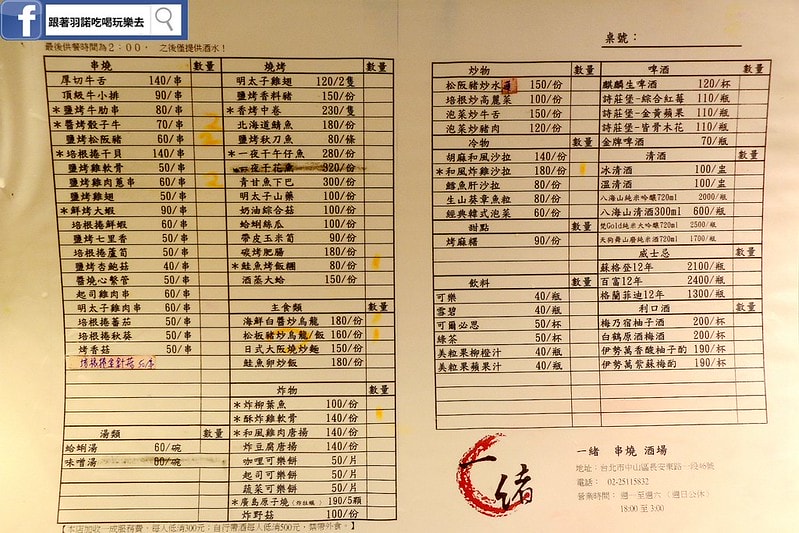 跟著羽諾吃喝玩樂去
最後供餐時間為2：00， 之後僅提供酒水！
串燒 數量
厚切牛舌 140/串
頂級牛小排 90/串
＊鹽烤牛肋串 80/串
＊醬烤骰子牛 70/串 2
鹽烤松阪豬 60/串 2
＊培根捲干貝 140/串
鹽烤雞軟骨 50/串
鹽烤雞肉蔥串 60/串 2
鹽烤雞翅 50/串
＊鮮烤大蝦 90/串
培根烤鯷蝦 60/串
鹽烤七里香 50/串
培根烤蘆筍 50/串
鹽烤杏鮑菇 40/串
醬燒心繫管 50/串
起司雞肉串 60/串
明太子雞肉串 60/串
培根捲蕃茄 50/串
培根捲秋葵 50/串
烤香菇 50/串
培根捲金針菇 50/串
湯類 數量
蛤蜊湯 60/碗
味噌湯 80/碗
燒烤 數量
明太子雞翅 120/2隻
鹽烤香料豬 150/份
＊香烤中卷 230/隻
北海道鯖魚 180/份
鹽烤秋刀魚 80/條
＊一夜干午仔魚 280/份
一夜干花魚 320/份
青甘魚下巴 300/份
明太子山藥 100/份
奶油綜合菇 100/份
蛤蜊絲瓜 100/份
帶皮玉米筍 90/份
碳烤肥腸 180/份
＊鮭魚烤飯糰 80/份
酒蒸大蛤 150/份
主食類 數量
海鮮白醬炒烏龍 180/份
松板豬炒烏龍/飯 160/份
日式大阪燒炒麵 150/份
鮭魚卵炒飯 180/份
炸物 數量
＊炸柳葉魚 100/份
＊酥炸雞軟骨 140/份
＊和風雞肉唐揚 140/份
炸豆腐唐揚 140/份
咖哩可樂餅 50/片
起司可樂餅 50/片
蔬菜可樂餅 50/片
＊廣島原子燒（炸牡蠣） 190/5顆
炸野菇 100/份
【本店加收一成服務費。每人低消300元；自行帶酒每人低消500元，禁帶外食。】
桌號：
炒物 數量
松阪豬炒水蓮 150/份
培根炒高麗菜 100/份
泡菜炒牛舌 150/份
泡菜炒豬肉 120/份
冷物 數量
胡麻和風沙拉 140/份
＊和風炸雞沙拉 180/份
鱈魚肝沙拉 80/份
生山葵章魚粒 80/份
經典韓式泡菜 60/份
甜點 數量
烤麻糬 90/份
飲料 數量
可樂 40/瓶
雪碧 40/瓶
可爾必思 50/杯
綠茶 50/杯
美粒果柳橙汁 40/瓶
美粒果蘋果汁 40/瓶
啤酒 數量
麒麟生啤酒 120/杯
詩莊堡-綜合紅莓 110/瓶
詩莊堡-金黃蘋果 110/瓶
詩莊堡-皆骨木花 110/瓶
金牌啤酒 70/瓶
清酒 數量
冰清酒 100/盅
溫清酒 100/盅
八海山純米吟釀720ml 2000/瓶
八海山清酒300ml 600/瓶
梵Gold純米大吟釀720ml 2500/瓶
天狗舞山廢純米酒720ml 1700/瓶
威士忌 數量
蘇格登12年 2100/瓶
百富12年 2400/瓶
格蘭菲迪12年 1300/瓶
利口酒 數量
梅乃宿柚子酒 200/杯
白鶴原酒梅酒 200/杯
伊勢萬香酸柚子酌 190/杯
伊勢萬紫蘇梅酌 190/杯
一緒
一緒 串燒 酒場
地址：台北市中山區長安東路一段46號
電話： 02-25115832
營業時間：週一至週六（週日公休）
18:00 至 3:00